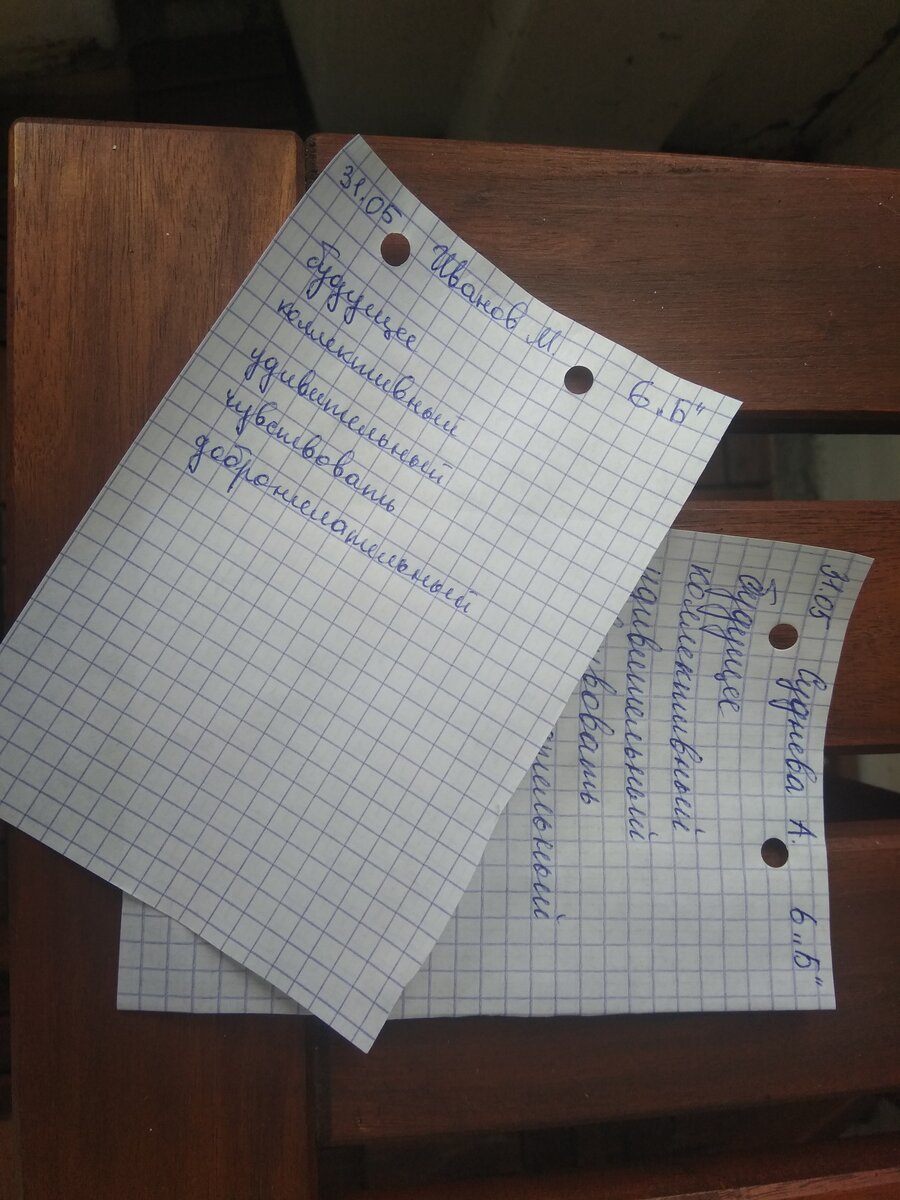 31.05 Иванов М. 6 „Б"
будущее
коллективный
удивительный
чувствовать
доброжелательный
31.05 Суднева А. 6 „Б"
будущее
коллективный
удивительный
вовать
тельный